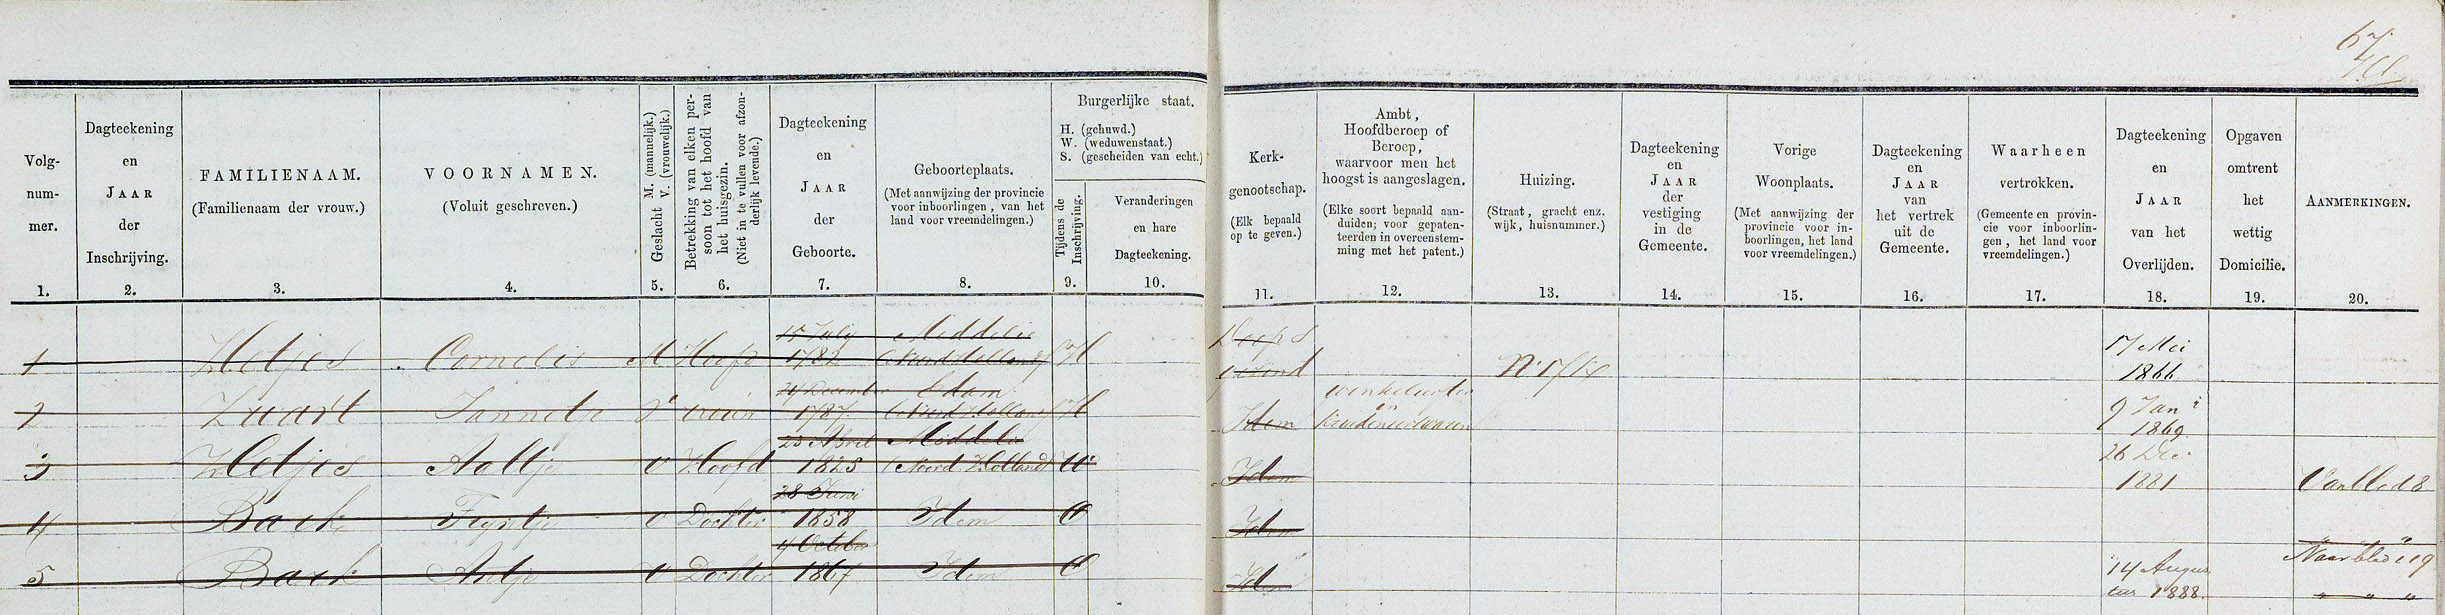 67
Volg-
num-
mer.
1.
Dagteekening
en
JAAR
der
Inschrijving.
2.
FAMILIENAAM.
(Familienaam der vrouw.)
3.
VOORNAMEN.
(Voluit geschreven.)
4.
Geslacht M. (mannelijk.)
V. (vrouwelijk.)
5.
Betrekking van elken per-
soon tot het hoofd van
het huisgezin.
(Niet in te vullen voor afzon-
derlijk levende.)
6.
Dagteekening
en
JAAR
der
Geboorte.
7.
Geboorteplaats.
(Met aanwijzing der provincie
voor inboorlingen, van het
land voor vreemdelingen.)
8.
Burgerlijke staat.
H. (gehuwd.)
W. (weduwenstaat.)
S. (gescheiden van echt.)
Tijdens de
Inschrijving.
9.
Veranderingen
en hare
Dagteekening.
10.
Kerk-
genootschap.
(Elk bepaald
op te geven.)
11.
Ambt,
Hoofdberoep of
Beroep,
waarvoor men het
hoogst is aangeslagen.
(Elke soort bepaald aan-
duiden; voor gepaten-
teerden in overeenstem-
ming met het patent.)
12.
Huizing.
(Straat, gracht enz.
wijk, huisnummer.)
13.
Dagteekening
en
JAAR
der
vestiging
in de
Gemeente.
14.
Vorige
Woonplaats.
(Met aanwijzing der
provincie voor in-
boorlingen, het land
voor vreemdelingen.)
15.
Dagteekening
en
JAAR
van
het vertrek
uit de
Gemeente.
16.
Waarheen
vertrokken.
(Gemeente en provin-
cie voor inboorlin-
gen, het land voor
vreemdelingen.)
17.
Dagteekening
en
JAAR
van het
Overlijden.
18.
Opgaven
omtrent
het
wettig
Domicilie.
19.
AANMERKINGEN.
20.
15 July Middelie
1 Heljes Cornelis M Hoofd 1782 (Noord Holland) H
Doopsgezind
17 Mei
1866
24 December Edam
2 Zwart Jannetje V vrouw 1787 (Noord Holland) H
Idem
winkelierster
in
kruidenierswaren
9 Jan
1869
23 April Middelie
3 Heljes Aaltje V Hoofd 1825 (Noord Holland) W
Idem
26 Dec
1881
Van blad 8
28 Juni
4 Bark Trijntje V Dochter 1858 Idem O
Idem
Naar blad 119
4 October
5 Bark Antje V Dochter 1867 Idem O
Idem
14 Augus
tus 1888.
" " "